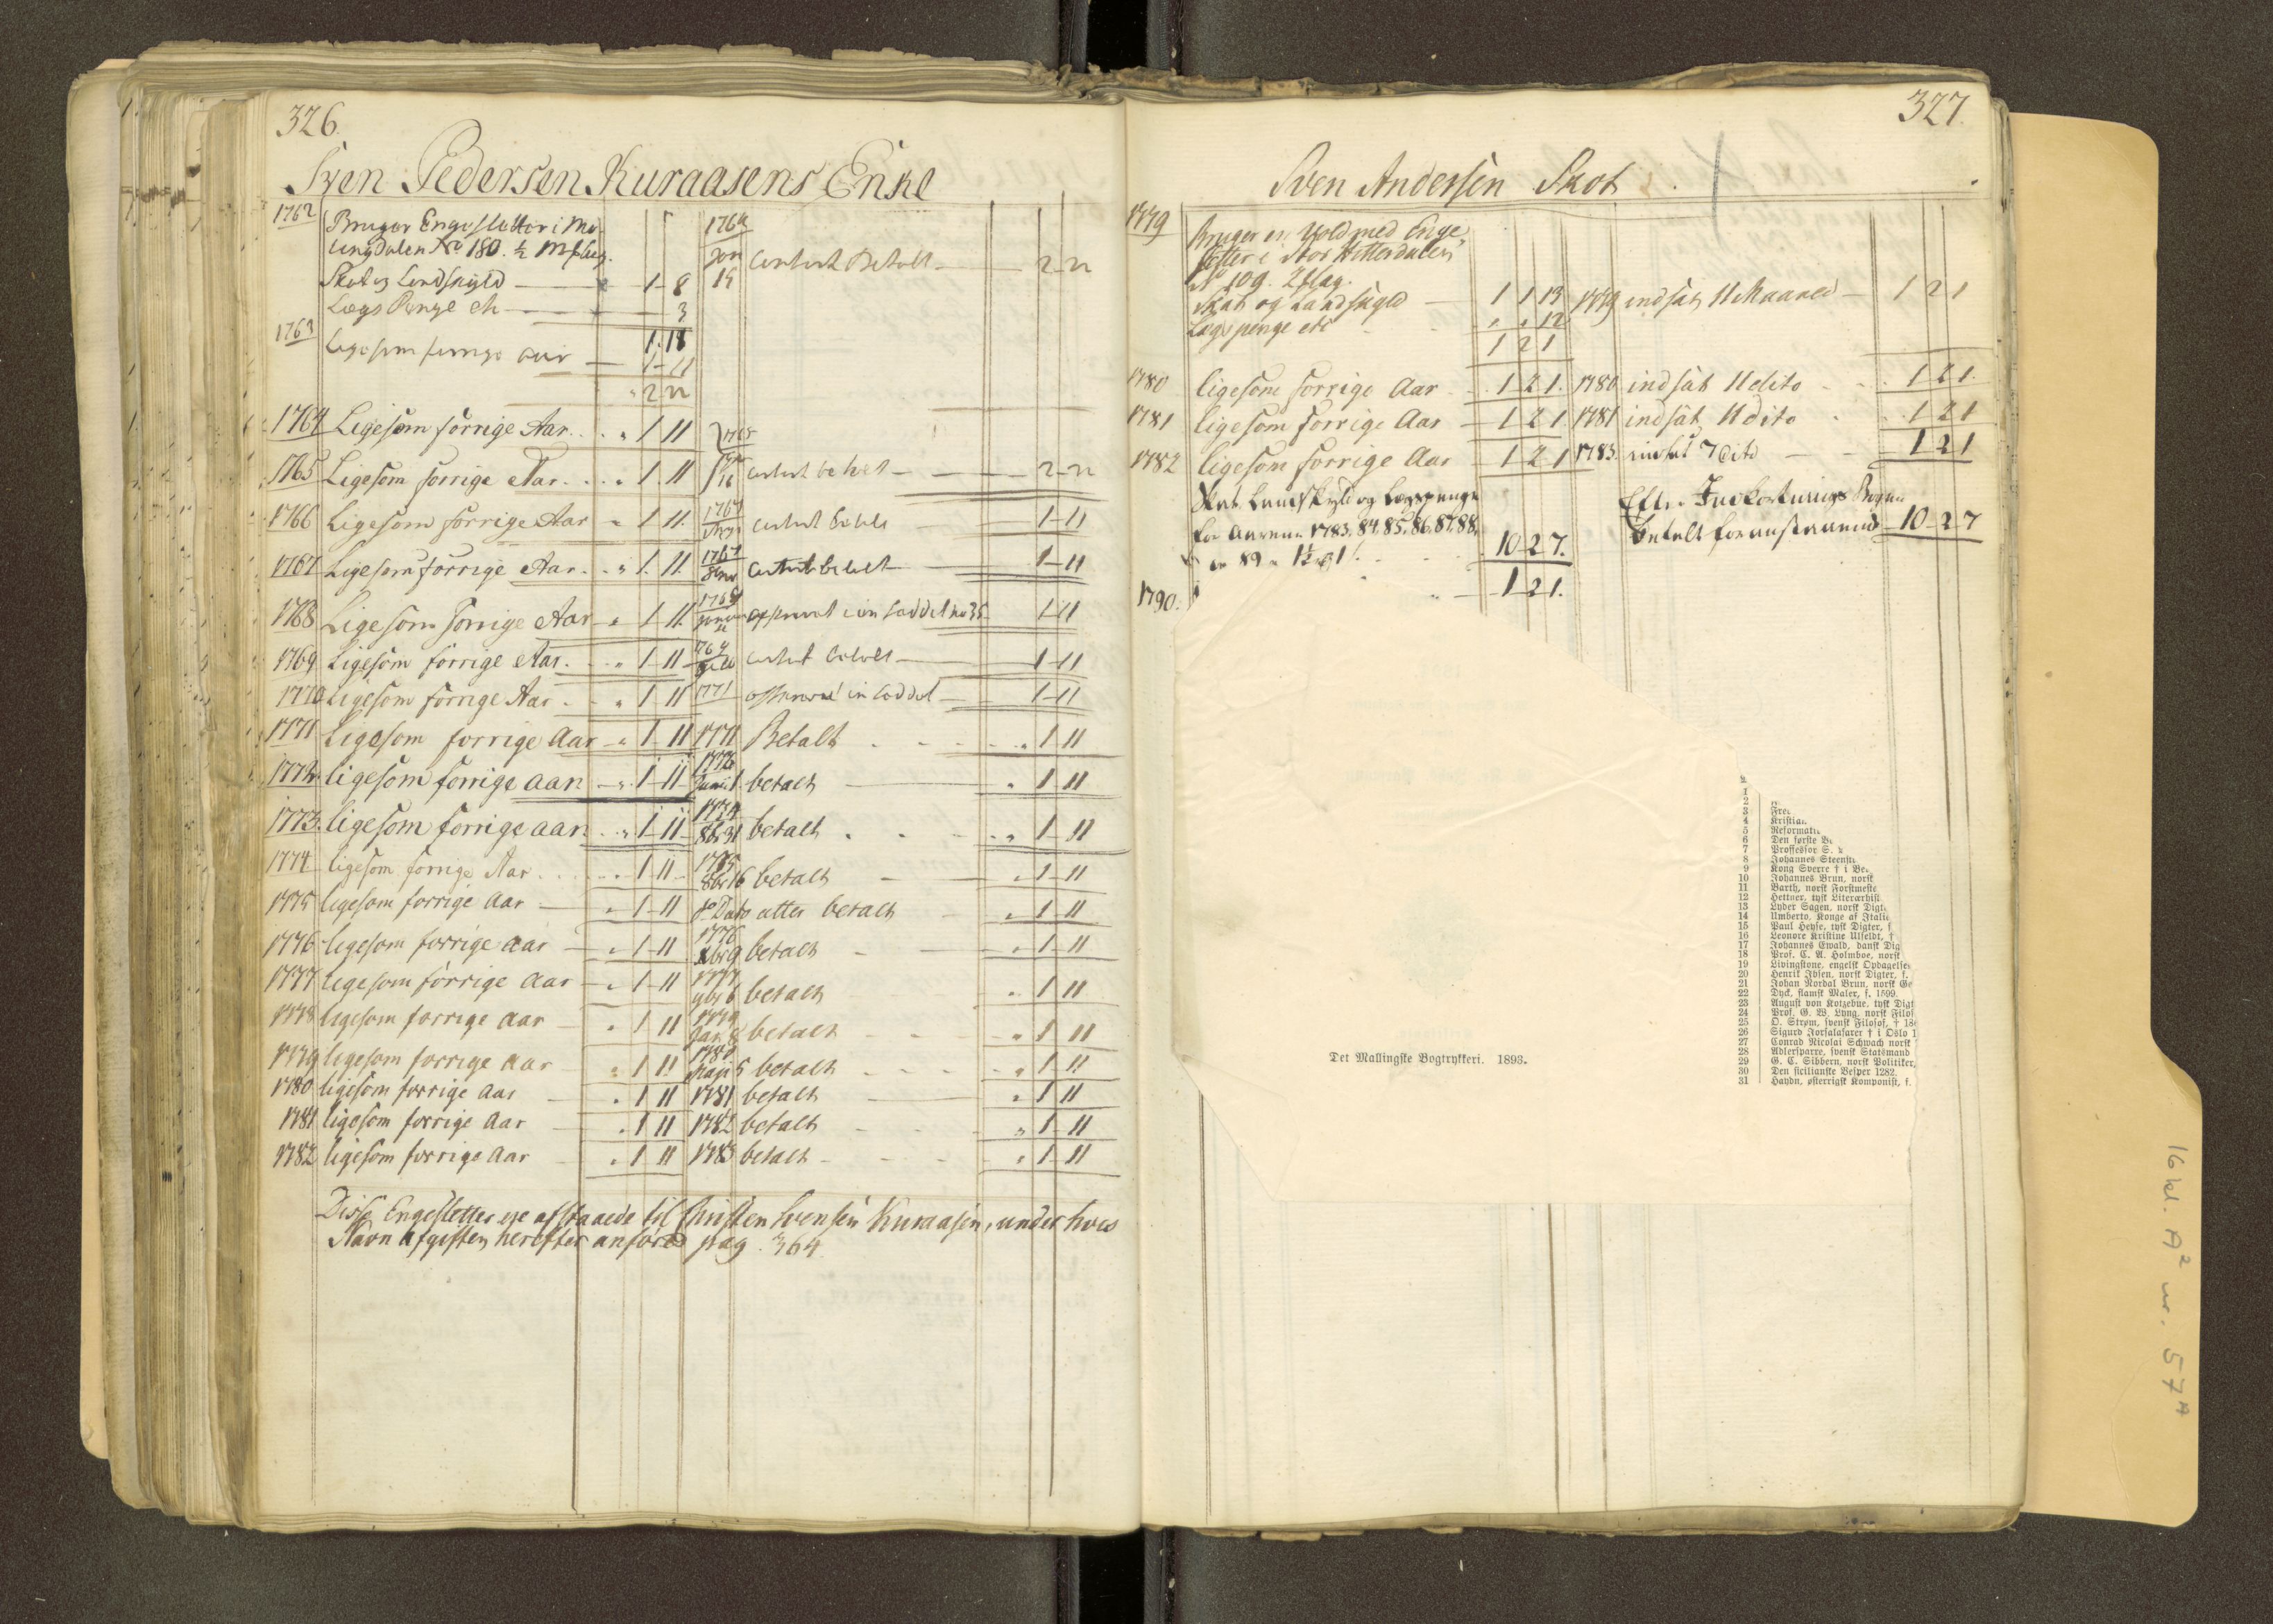 326.
Sven Pedersen Kuraasens Enke
1762 Bruger Engesletter i Mo-
lingdalen No 180. ½
Skat og Landskyld 1-8
Lægs Penge etc 3
1.11
1763 Ligesom forrige aar 1-11
2-22
1764 Jan 15 Betalt 2-22
1764 Ligesom forrige Aar . . „ 1 11
1765 Ligesom forrige Aar . . „ 1. 11 betalt 2-22
1766 Ligesom forrige Aar „ 1 11. 1767 betalt 1-11
1767 Ligesom forrige Aar . . „ 1. 11. 1767 betalt 1-11
1768 Ligesom forrige Aar „ 1 11. 1-11
1769 Ligesom forrige Aar . . „ 1-11 betalt 1-11
1770 Ligesom forrige Aar . . „ 1-11 1771 1-11
1771 Ligesom forrige Aar „ 1-11 1771 Betalt . . „ 1 11
1772. ligesom forrige aar „ 1-11 Junii 1 betalt „ 1 11
1773. ligesom forrige aar. „ 1-11 1774 8br 31 betalt . . „ 1-11
1774 ligesom forrige Aar . . „ 1 11 1775 8br 16 betalt „ 1-11
1775 ligesom forrige Aar „ 1-11 Dato atter betalt „ 1-11
1776 ligesom forrige aar „ 1-11 1776 xbr 9 betalt „ 1-11
1777 ligesom forrige Aar „ 1-11 1777 9br 6 betalt „ 1 11
1778 ligesom forrige Aar „ 1 11 1779 Jan 8 betalt „ 1 11
1779 ligesom forrige Aar „ 1 11 1780 5 betalt „ 1 11
1780 ligesom forrige Aar „ 1 11 1781 betalt „ 1 11
1781 ligesom forrige Aar „ 1 11 1782 betalt „ 1-11
1782 ligesom forrige Aar „ 1 11 1783 betalt „ 1-11
Disse Engesletter ere afstaaede til Christen Svensen Kuraasen, under hvis
Navn Afgiften herefter anføres pag. 364.
327.
Sven Andersen Skot
1779 Bruger en Vold med Enge,
sletter i Stor Hitterdalen
No 109. 2 Slag.
Skat og Landskyld 1 1 13 1779 indsat 11 Maaned 1 2 1
Lægspenge etc „ „ 12
1 2 1
1780 ligesom forrige Aar 1 2 1. 1780 indsat 11 dito 1 2 1.
1781 ligesom forrige Aar 1 2 1. 1781 indsat 11 dito 1 2 1
1782 ligesom forrige Aar 1 2 1 1783. indsat 7 dito 1 2 1
Skat Landskyld og Lægspenge
for Aarene 1783. 84. 85. 86. 87. 88.
10-2 7.
Efter Inckorterings Bogen
betalt foranstaaende 10-2-7
1790. 1 2 1.
Det Mallingske Bogtrykkeri. 1893.
1
2
3 Fre
4 Kristia
5 Reformati
6 Den første
7 Proffessor S.
8 Johannes Steenst
9 Kong Sverre † i Be
10 Johannes Brun, norsk
11 Barth, norsk Forstmeste
12 Hettner, tysk Literærhist
13 Lyder Sagen, norsk Digt
14 Umberto, Konge af Italie
15 Paul Heyse, tysk Digter, f
16 Leonore Kristine Ulfeldt, †
17 Johannes Ewald, dansk Dig
18 Prof. C. A. Holmboe, norsk
19 Livingstone, engelsk Opdagelse
20 Henrik Ibsen, norsk Digter, f.
21 Johan Nordal Brun, norsk Ge
22 Dyck, flamsk Maler, f. 1599.
23 August von Kotzebue, tysk Digt
24 Prof. G. W. Lyng, norsk Filos
25 O. Strøm, svensk Filosof, † 18
26 Sigurd Jorsalafarer † i Oslo 1
27 Conrad Nicolai Schwach norsk
28 Adlersparre, svensk Statsmand
29 G. C. Sibbern, norsk Politiker,
30 Den sicilianske Vesper 1282.
31 Haydn, østerrigsk Komponist, f.
16 kl. A² nr. 57 A